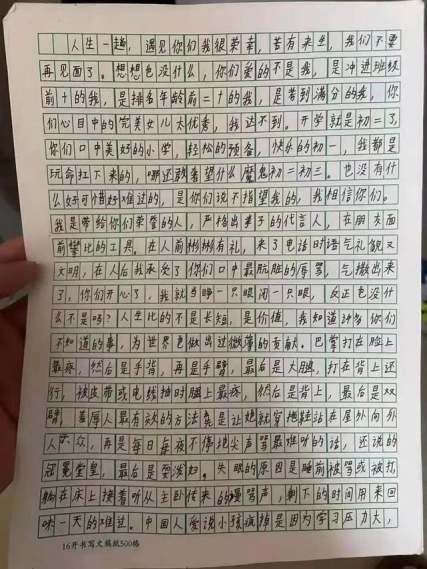 人生一趟，遇见你们我很荣幸，若有来生，我们不要
再见面了。想想也没什么，你们爱的不是我，是冲进班级
前十的我，是排名年龄前二十的我，是考到满分的我，你
们心目中的完美女儿太优秀，我达不到。开学就是初二了，
你们口中美好的小学，轻松的预备，快乐的初一，我都是
玩命扛下来的，哪还敢奢望什么魔鬼初二初三。也没有什
么好可惜好难过的，是你们说不指望我的，我相信你们。
我是带给你们荣誉的人，严格出孝子的代言人，在朋友面
前攀比的工具。在人前彬彬有礼，来了电话时语气礼貌又
文明，在人后我承受了你们口中最肮脏的辱骂，气撒出来
了，你们开心了，我就当睁一只眼闭一只眼，反正也没什
么不是吗？人生比的不是长短，是价值，我知道许多你们
不知道的事，为世界也做出过微薄的贡献。巴掌打在脸上
最疼，然后是手背，再是手臂，最后是大腿，打在背上还
行，被皮带或电线抽时腿上最疼，然后是背上，最后是双
臂，羞辱人最有效的方法莫是让她就穿拖鞋站在屋外向外
人示众，再是每日每夜不停地尖声骂最难听的话，还说的
冠冕堂皇，最后是耍泼妇。失眠的原因是睡前被骂或被打，
躺在床上接着听从主卧传来的谩骂声，剩下的时间用来回
味一天的难过。中国人爱说小孩疯掉是因为学习压力大，
16开书写文稿纸500格